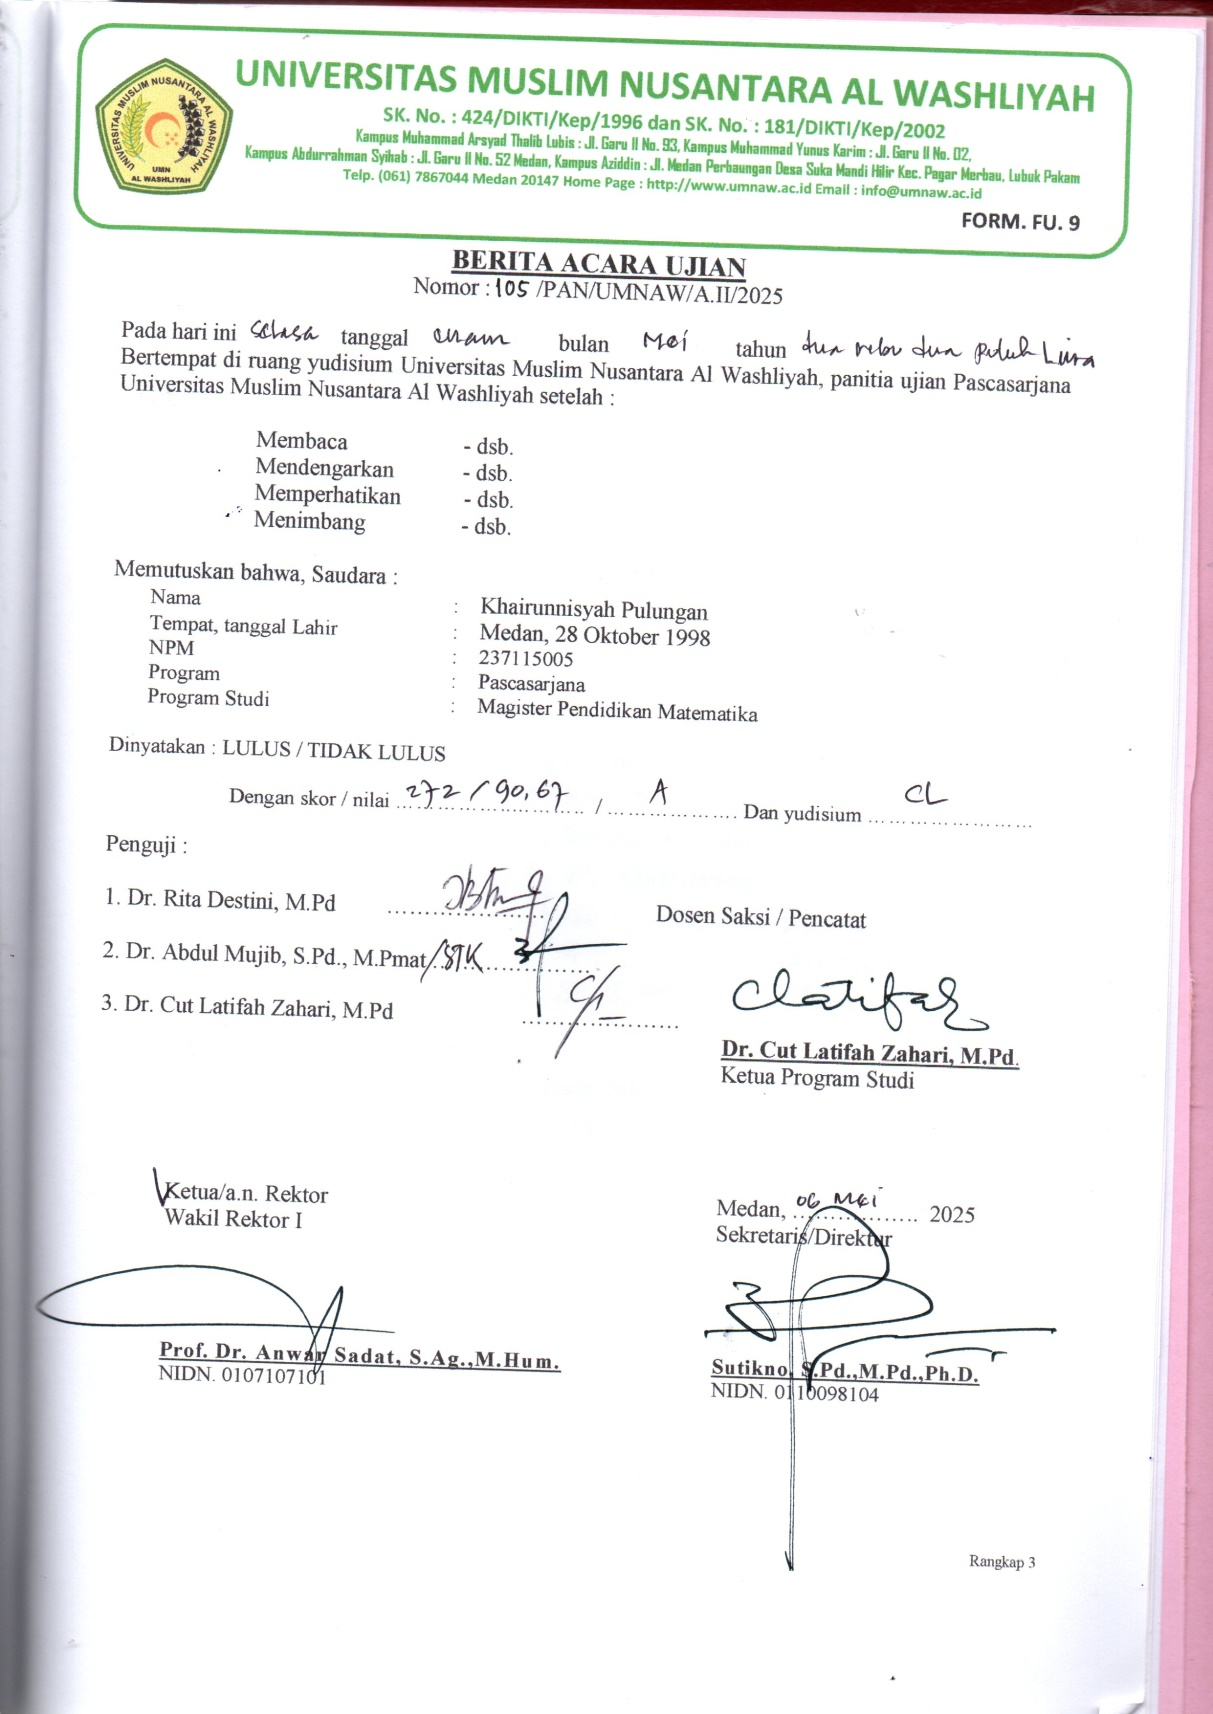 UNIVERSITAS MUSLIM NUSANTARA AL WASHLIYAH
UMN
AL WASHLIYAH
UNIVERSITAS MUSLIM NUSANTARA AL WASHLIYAH
SK. No. : 424/DIKTI/Kep/1996 dan SK. No. : 181/DIKTI/Kep/2002
Kampus Muhammad Arsyad Thalib Lubis : Jl. Garu II No. 93, Kampus Muhammad Yunus Karim : Jl. Garu II No. 02,
Kampus Abdurrahman Syihab : Jl. Garu II No. 52 Medan, Kampus Aziddin : Jl. Medan Perbaungan Desa Suka Mandi Hilir Kec. Pagar Merbau, Lubuk Pakam
Telp. (061) 7867044 Medan 20147 Home Page : http://www.umnaw.ac.id Email : info@umnaw.ac.id
FORM. FU. 9
BERITA ACARA UJIAN
Nomor : 105 /PAN/UMNAW/A.II/2025
Pada hari ini Selasa tanggal enam bulan Mei tahun dua ribu dua puluh Lima
Bertempat di ruang yudisium Universitas Muslim Nusantara Al Washliyah, panitia ujian Pascasarjana
Universitas Muslim Nusantara Al Washliyah setelah :
Membaca - dsb.
Mendengarkan - dsb.
Memperhatikan - dsb.
Menimbang - dsb.
Memutuskan bahwa, Saudara :
Nama : Khairunnisyah Pulungan
Tempat, tanggal Lahir : Medan, 28 Oktober 1998
NPM : 237115005
Program : Pascasarjana
Program Studi : Magister Pendidikan Matematika
Dinyatakan : LULUS / TIDAK LULUS
Dengan skor / nilai 272 / 90,67 / A Dan yudisium CL
Penguji :
1. Dr. Rita Destini, M.Pd
Dosen Saksi / Pencatat
2. Dr. Abdul Mujib, S.Pd., M.Pmat
3. Dr. Cut Latifah Zahari, M.Pd
Clatifah
Dr. Cut Latifah Zahari, M.Pd.
Ketua Program Studi
Ketua/a.n. Rektor
Wakil Rektor I
Medan, 06 Mei 2025
Sekretaris/Direktur
Prof. Dr. Anwar Sadat, S.Ag.,M.Hum.
NIDN. 0107107101
Sutikno, S.Pd.,M.Pd.,Ph.D.
NIDN. 0110098104
Rangkap 3